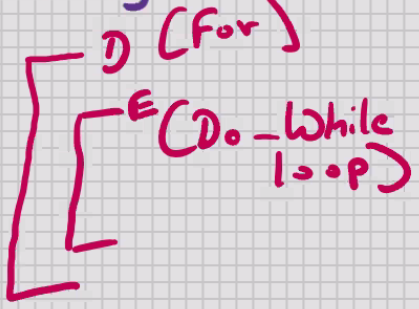 D (For)
E (Do-While
loop)